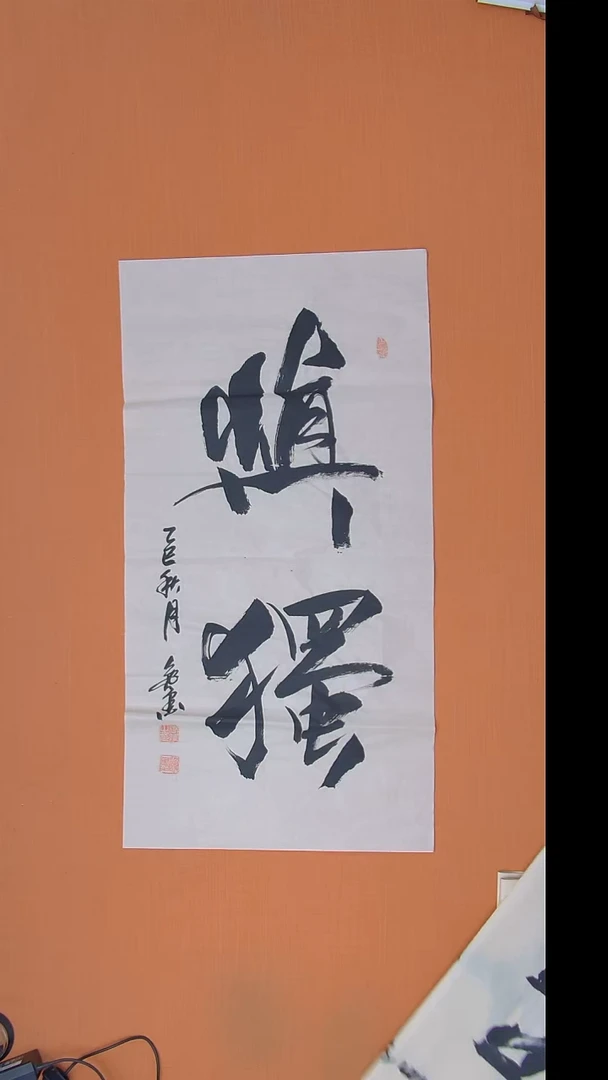 慎獨
乙巳秋月